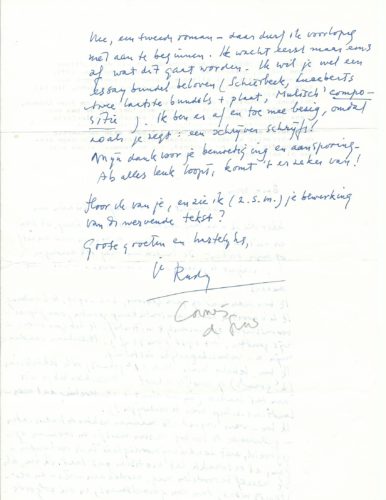 Nee, een tweede roman – daar durf ik voorlopig
niet aan te beginnen. Ik wacht eerst maar eens
af wat dit gaat worden. Ik wil je wel een
essaybundel beloven (Schierbeek, Lucebert's
twee laatste bundels + plaat, Mulisch' compo-
sitie). Ik ben er af en toe mee bezig, omdat
zoals je zegt: een schrijver schrijft!
Mijn dank voor je bemoediging en aansporing –
Als alles leuk loopt, komt 't er zeker van!
Hoor ik van je, en zie ik (z.s.m.) je bewerking
van de wervende tekst?
Grote groeten en hartelijks,
je Rudy